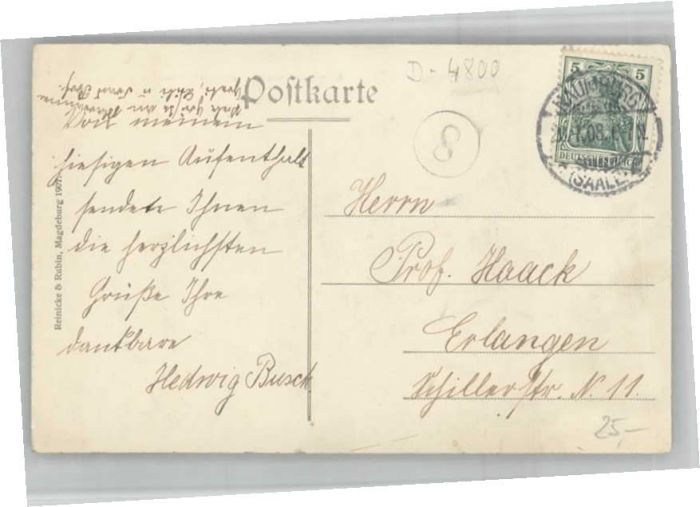 Postkarte
D-4800
8
5 5
NAUMBURG
DEUTSCHES REICH
(SAALE)
Von meinem
hiesigen Aufenthalt
sendet Ihnen
die herzlichsten
Grüße Ihre
dankbare
Hedwig Busch
Herrn
Prof. Haack
Erlangen
Schillerstr. N. 11.
25-
Reinicke & Rubin, Magdeburg 1907.